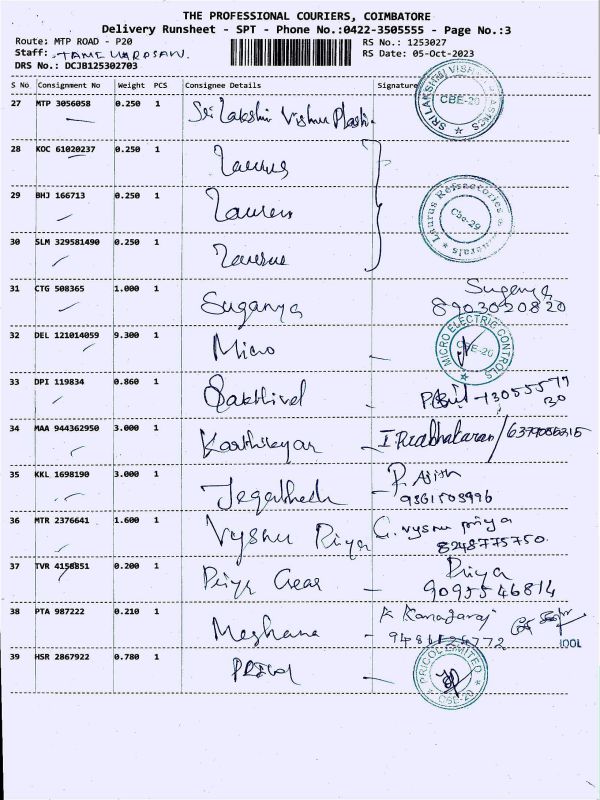 THE PROFESSIONAL COURIERS, COIMBATORE
Delivery Runsheet - SPT - Phone No.:0422-3505555 - Page No.:3
Route: MTP ROAD - P20 RS No.: 1253027
Staff: RS Date: 05-Oct-2023
DRS No.: DCJB125302703
S No Consignment No Weight PCS Consignee Details Signature
27 MTP 3056058 0.250 1 Sri Lakshmi Vishnu Plasti. SRI LAKSHMI VISHNU PLASTICS CBE-29
28 KOC 61020237 0.250 1 Laurus
29 BHJ 166713 0.250 1 Laurus Laurus Refractories & Minerals Cbe-29
30 SLM 329581490 0.250 1 Laurus
31 CTG 508365 1.000 1 Suganya Suganya
8903020820
32 DEL 121014059 9.300 1 Micro - MICRO ELECTRIC CONTROLS
33 DPI 119834 0.860 1 Sakthivel
34 MAA 944362950 3.000 1 Karthikeyan - I. Prabhakaran/
35 KKL 1698190 3.000 1 Jegathesh - P. Ajith
36 MTR 2376641 1.600 1 Vyshu Priya G. Vyshu Priya
8248775750.
37 TVR 4158851 0.200 1 Priya Gear - Priya
9095546814
38 PTA 987222 0.210 1 Meghana - K Kanagaraj
39 HSR 2867922 0.780 1 PRICOL - PRICOL LIMITED CBE-20